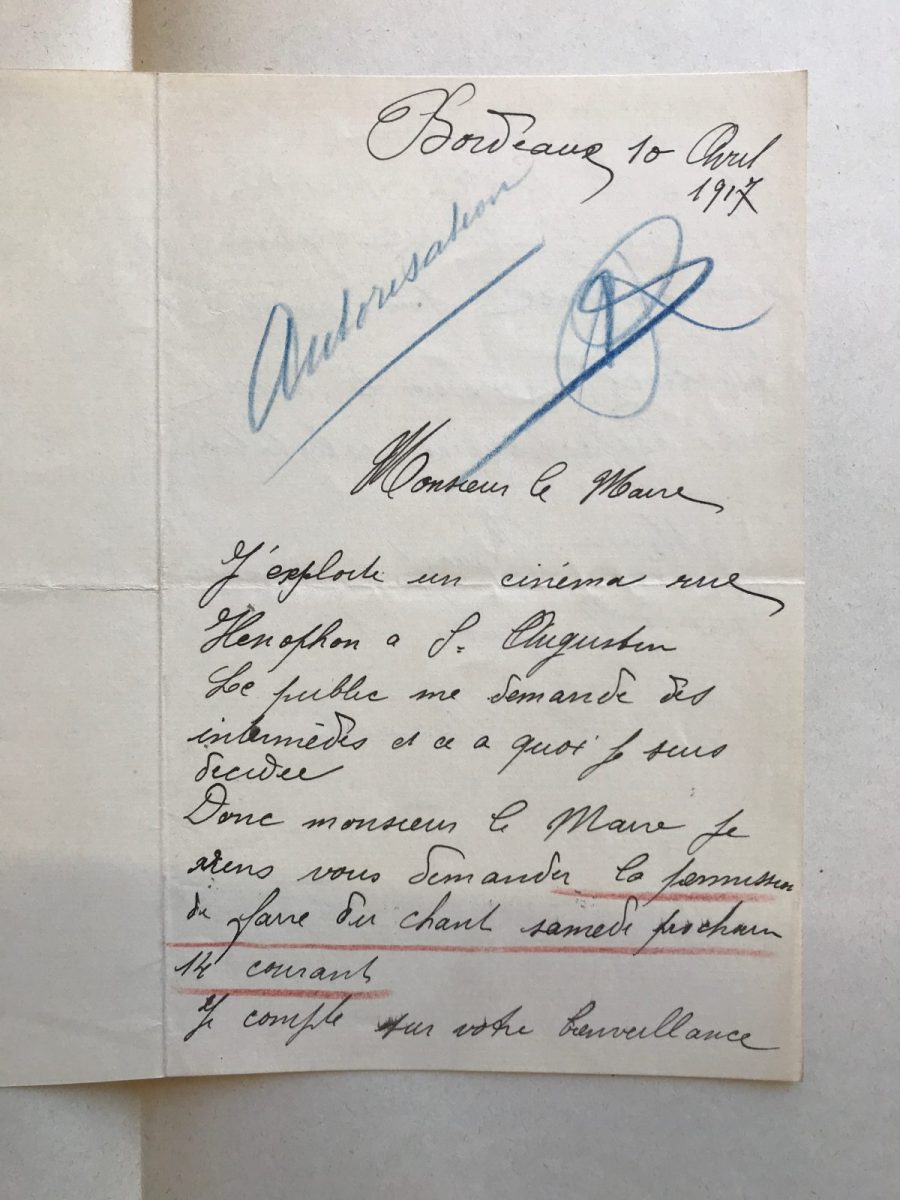 Bordeaux 10 Avril
1917
Autorisation
Monsieur le Maire
J'exploite un cinéma rue
Henophon a St Augustin
Le public me demande des
intermèdes et ce a quoi je suis
decidée
Donc monsieur le Maire je
viens vous demander la permission
de faire du chant samedi prochain
14 courant
Je compte sur votre bienveillance